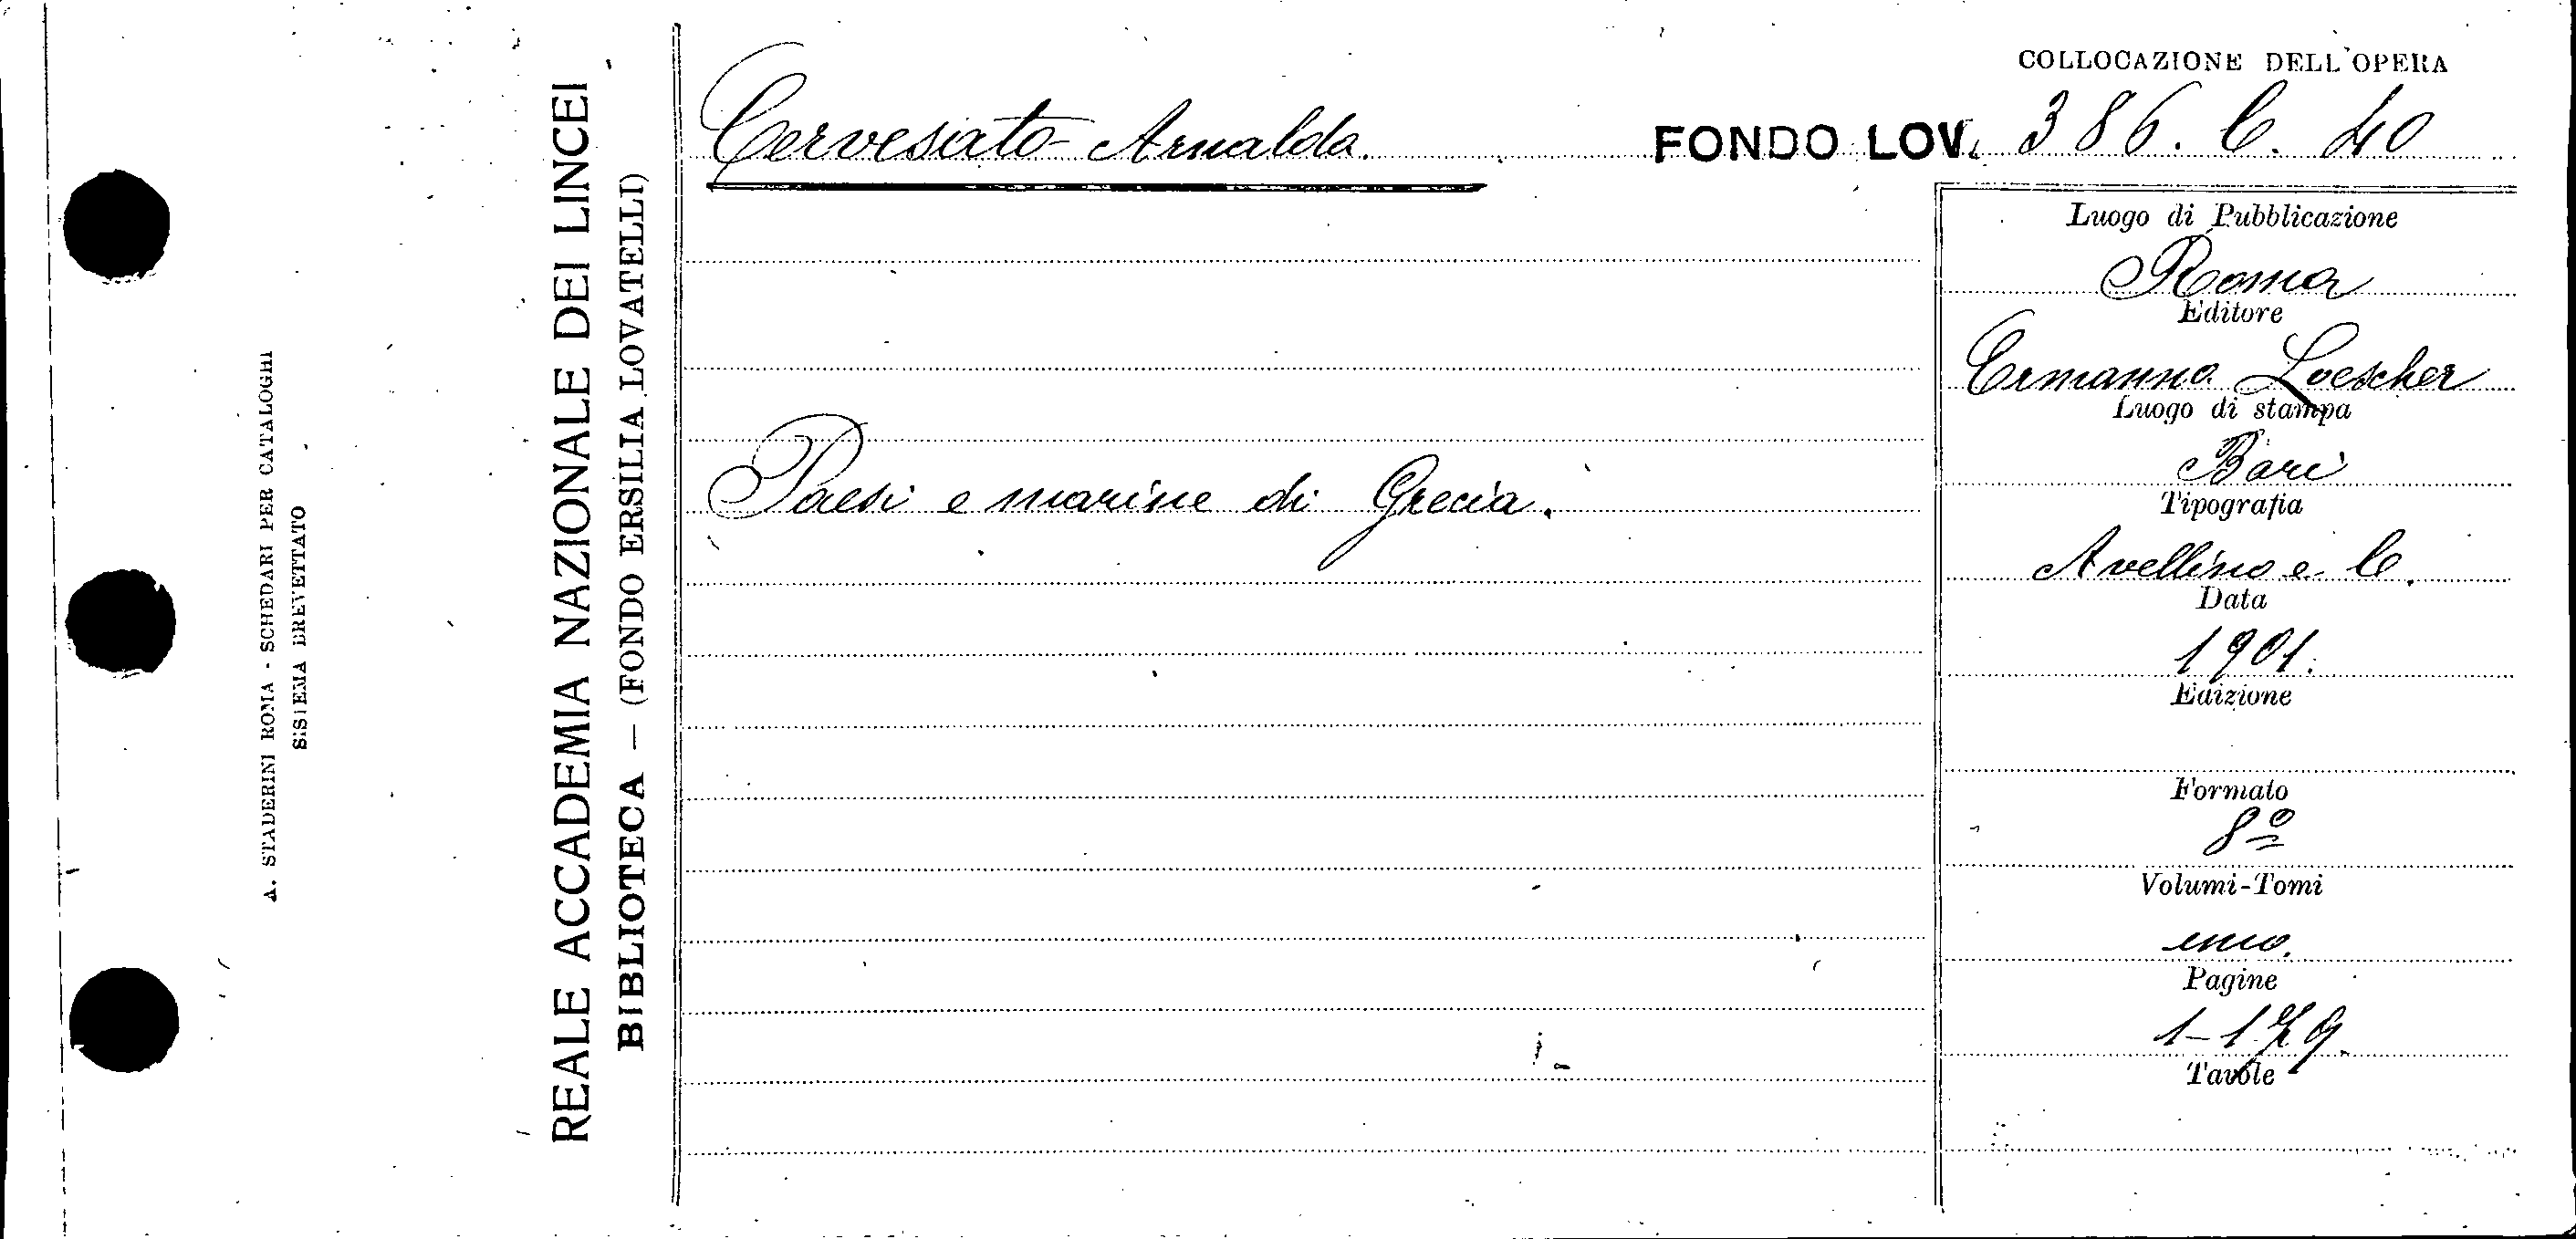 COLLOCAZIONE DELL'OPERA
Cervesato Arnaldo.
FONDO LOV. 386. C. 40
Luogo di Pubblicazione
Roma
Editore
Ermanno Loescher
Luogo di stampa
Bari
Paesi e marine di Grecia.
Tipografia
Avellino e C.
Data
1901.
Edizione
Formato
8º
Volumi-Tomi
uno.
Pagine
1-179.
Tavole
REALE ACCADEMIA NAZIONALE DEI LINCEI
BIBLIOTECA — (FONDO ERSILIA LOVATELLI)
A. STADERINI ROMA - SCHEDARI PER CATALOGHI
SISTEMA BREVETTATO